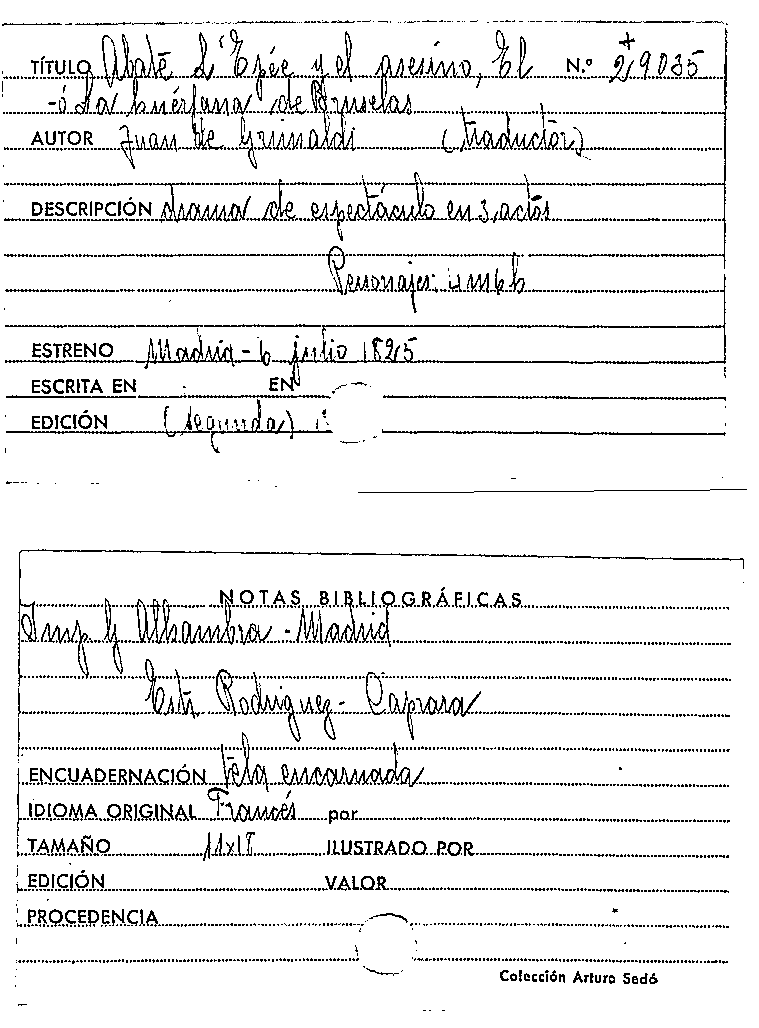 TÍTULO Abate L'Epée y el asesino, El N.º 29035
-ó La huérfana de Bruselas
AUTOR Juan de Grimaldi (traductor)
DESCRIPCIÓN drama de espectáculo en 3, actos
Personajes: 4 m 6 h
ESTRENO Madrid - 6 julio 1825
ESCRITA EN EN
EDICIÓN (segunda)
NOTAS BIBLIOGRÁFICAS
Imp. y Alhambra - Madrid
Estr. Rodriguez - Caprara
ENCUADERNACIÓN tela encarnada
IDIOMA ORIGINAL Francés por
TAMAÑO 11x18 ILUSTRADO POR
EDICIÓN VALOR
PROCEDENCIA
Colección Arturo Sedó